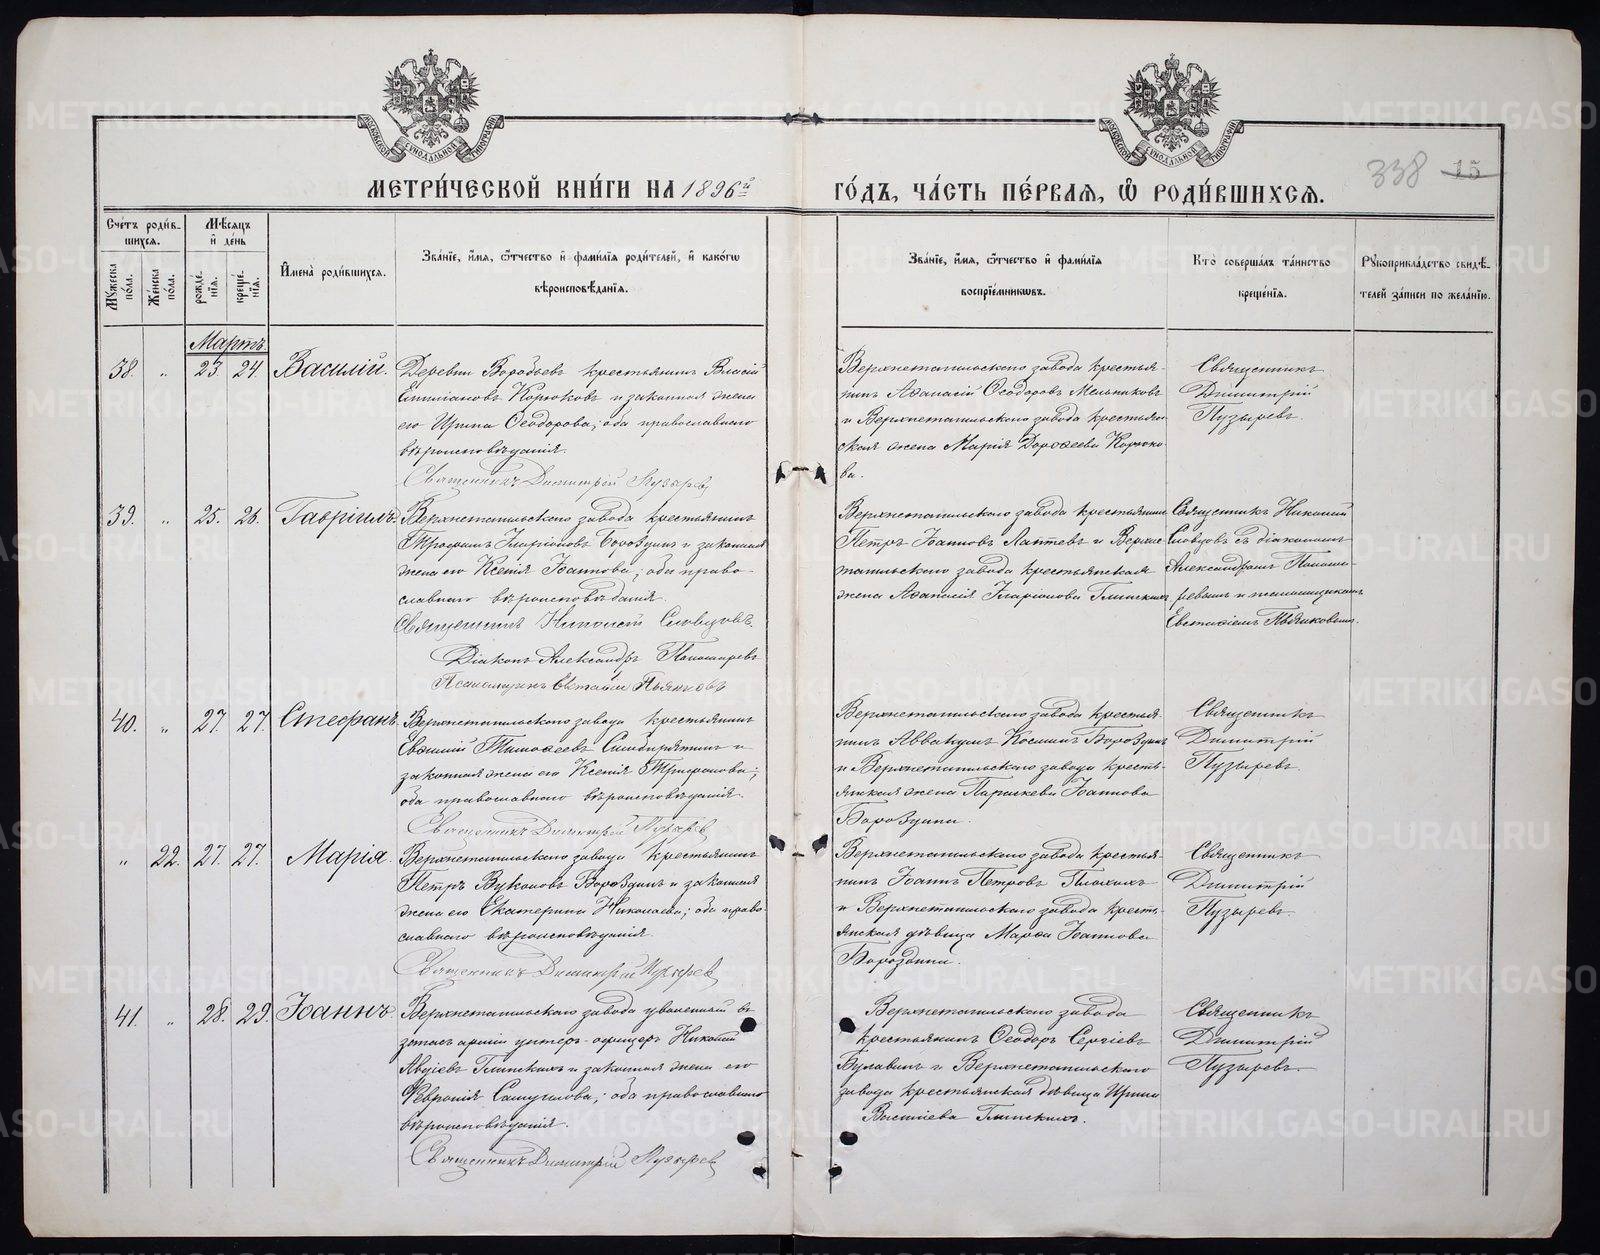 МЕТРИ́ЧЕСКОЙ КНИ́ГИ НА 1896й
ГО́ДЪ, ЧА́СТЬ ПЕ́РВАЯ, Ѽ РОДИ́ВШИХСЯ.
338 15
Сче́тъ роди́в-
шихся.
Мꙋжеска по́ла.
Же́нска по́ла.
Мѣ́сяцъ
и҆ де́нь
рожде́нїя.
креще́нїя.
И҆мена̀ роди́вшихся.
Зва́нїе, и҆́мя, ѻ҆́тчество и҆ фами́лїя роди́телей, и҆ како́гѡ
вѣроисповѣ́данїя.
Зва́нїе, и҆́мя, ѻ҆́тчество и҆ фами́лїя
воспрїе́мникѡвъ.
Кто̀ соверша́лъ та́инство
креще́нїя.
Рꙋкоприкла́дство свидѣ́-
телей за́писи по жела́нїю.
Мартъ.
38. „ 23. 24. Василій.
Деревни Воробьевъ крестьянинъ Власій
Емиліановъ Корюковъ и законная жена
его Ирина Ѳеодорова; оба православнаго
вѣроисповѣданія.
Священникъ Димитрій Пузыревъ
Верхнетагильскаго завода крестья-
нинъ Аѳанасій Ѳеодоровъ Мельниковъ
и Верхнетагильскаго завода крестьян-
ская жена Марія Дороѳеева Корюко-
ва.
Священникъ
Димитрій
Пузыревъ.
39. „ 25. 26. Гавріилъ.
Верхнетагильскаго завода крестьянинъ
Трофимъ Иларіоновъ Бороздинъ и законная
жена его Ксенія Іоаннова; оба право-
славнаго вѣроисповѣданія.
Священникъ Николай Словцовъ.
Діаконъ Александръ
Псаломщикъ Евстафій Пьянковъ
Верхнетагильскаго завода крестьянинъ
Петръ Іоанновъ Лаптевъ и Верхне-
тагильскаго завода крестьянская
жена Аѳанасія Иларіонова Глинскихъ.
Священникъ Николай
Словцовъ съ діакономъ
Александромъ
и псаломщикомъ
Евстафіемъ Пьянковымъ.
40. „ 27. 27. Стефанъ.
Верхнетагильскаго завода крестьянинъ
Евѳимій Тимоѳеевъ Симбирятинъ и
законная жена его Ксенія Трифонова;
оба православнаго вѣроисповѣданія.
Священникъ Димитрій Пузыревъ
Верхнетагильскаго завода крестья-
нинъ Аввакумъ Косминъ Бороздинъ
и Верхнетагильскаго завода кресть-
янская жена Параскева Іоаннова
Бороздина.
Священникъ
Димитрій
Пузыревъ.
„ 22. 27. 27. Марія.
Верхнетагильскаго завода крестьянинъ
Петръ Вуколовъ Бороздинъ и законная
жена его Екатерина Николаева; оба право-
славнаго вѣроисповѣданія.
Священникъ Димитрій Пузыревъ
Верхнетагильскаго завода крестья-
нинъ Іоаннъ Петровъ Плохихъ
и Верхнетагильскаго завода кресть-
янская дѣвица Марѳа Іоаннова
Бороздина.
Священникъ
Димитрій
Пузыревъ.
41. „ 28. 29. Іоаннъ.
Верхнетагильскаго завода уволенный въ
запасъ арміи унтеръ-офицеръ Николай
Авдіевъ Глинскихъ и законная жена его
Февронія Самуилова; оба православнаго
вѣроисповѣданія.
Священникъ Димитрій Пузыревъ
Верхнетагильскаго завода
крестьянинъ Ѳеодоръ Сергіевъ
Булавинъ и Верхнетагильскаго
завода крестьянская дѣвица Ирина
Василіева Глинскихъ.
Священникъ
Димитрій
Пузыревъ.
METRIKI.GASO-URAL.RU